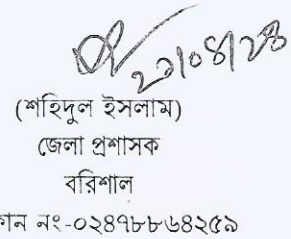 ২১/০৪/২৪
(শহিদুল ইসলাম)
জেলা প্রশাসক
বরিশাল
নং-০২৪৭৮৮৬৪২৫৯